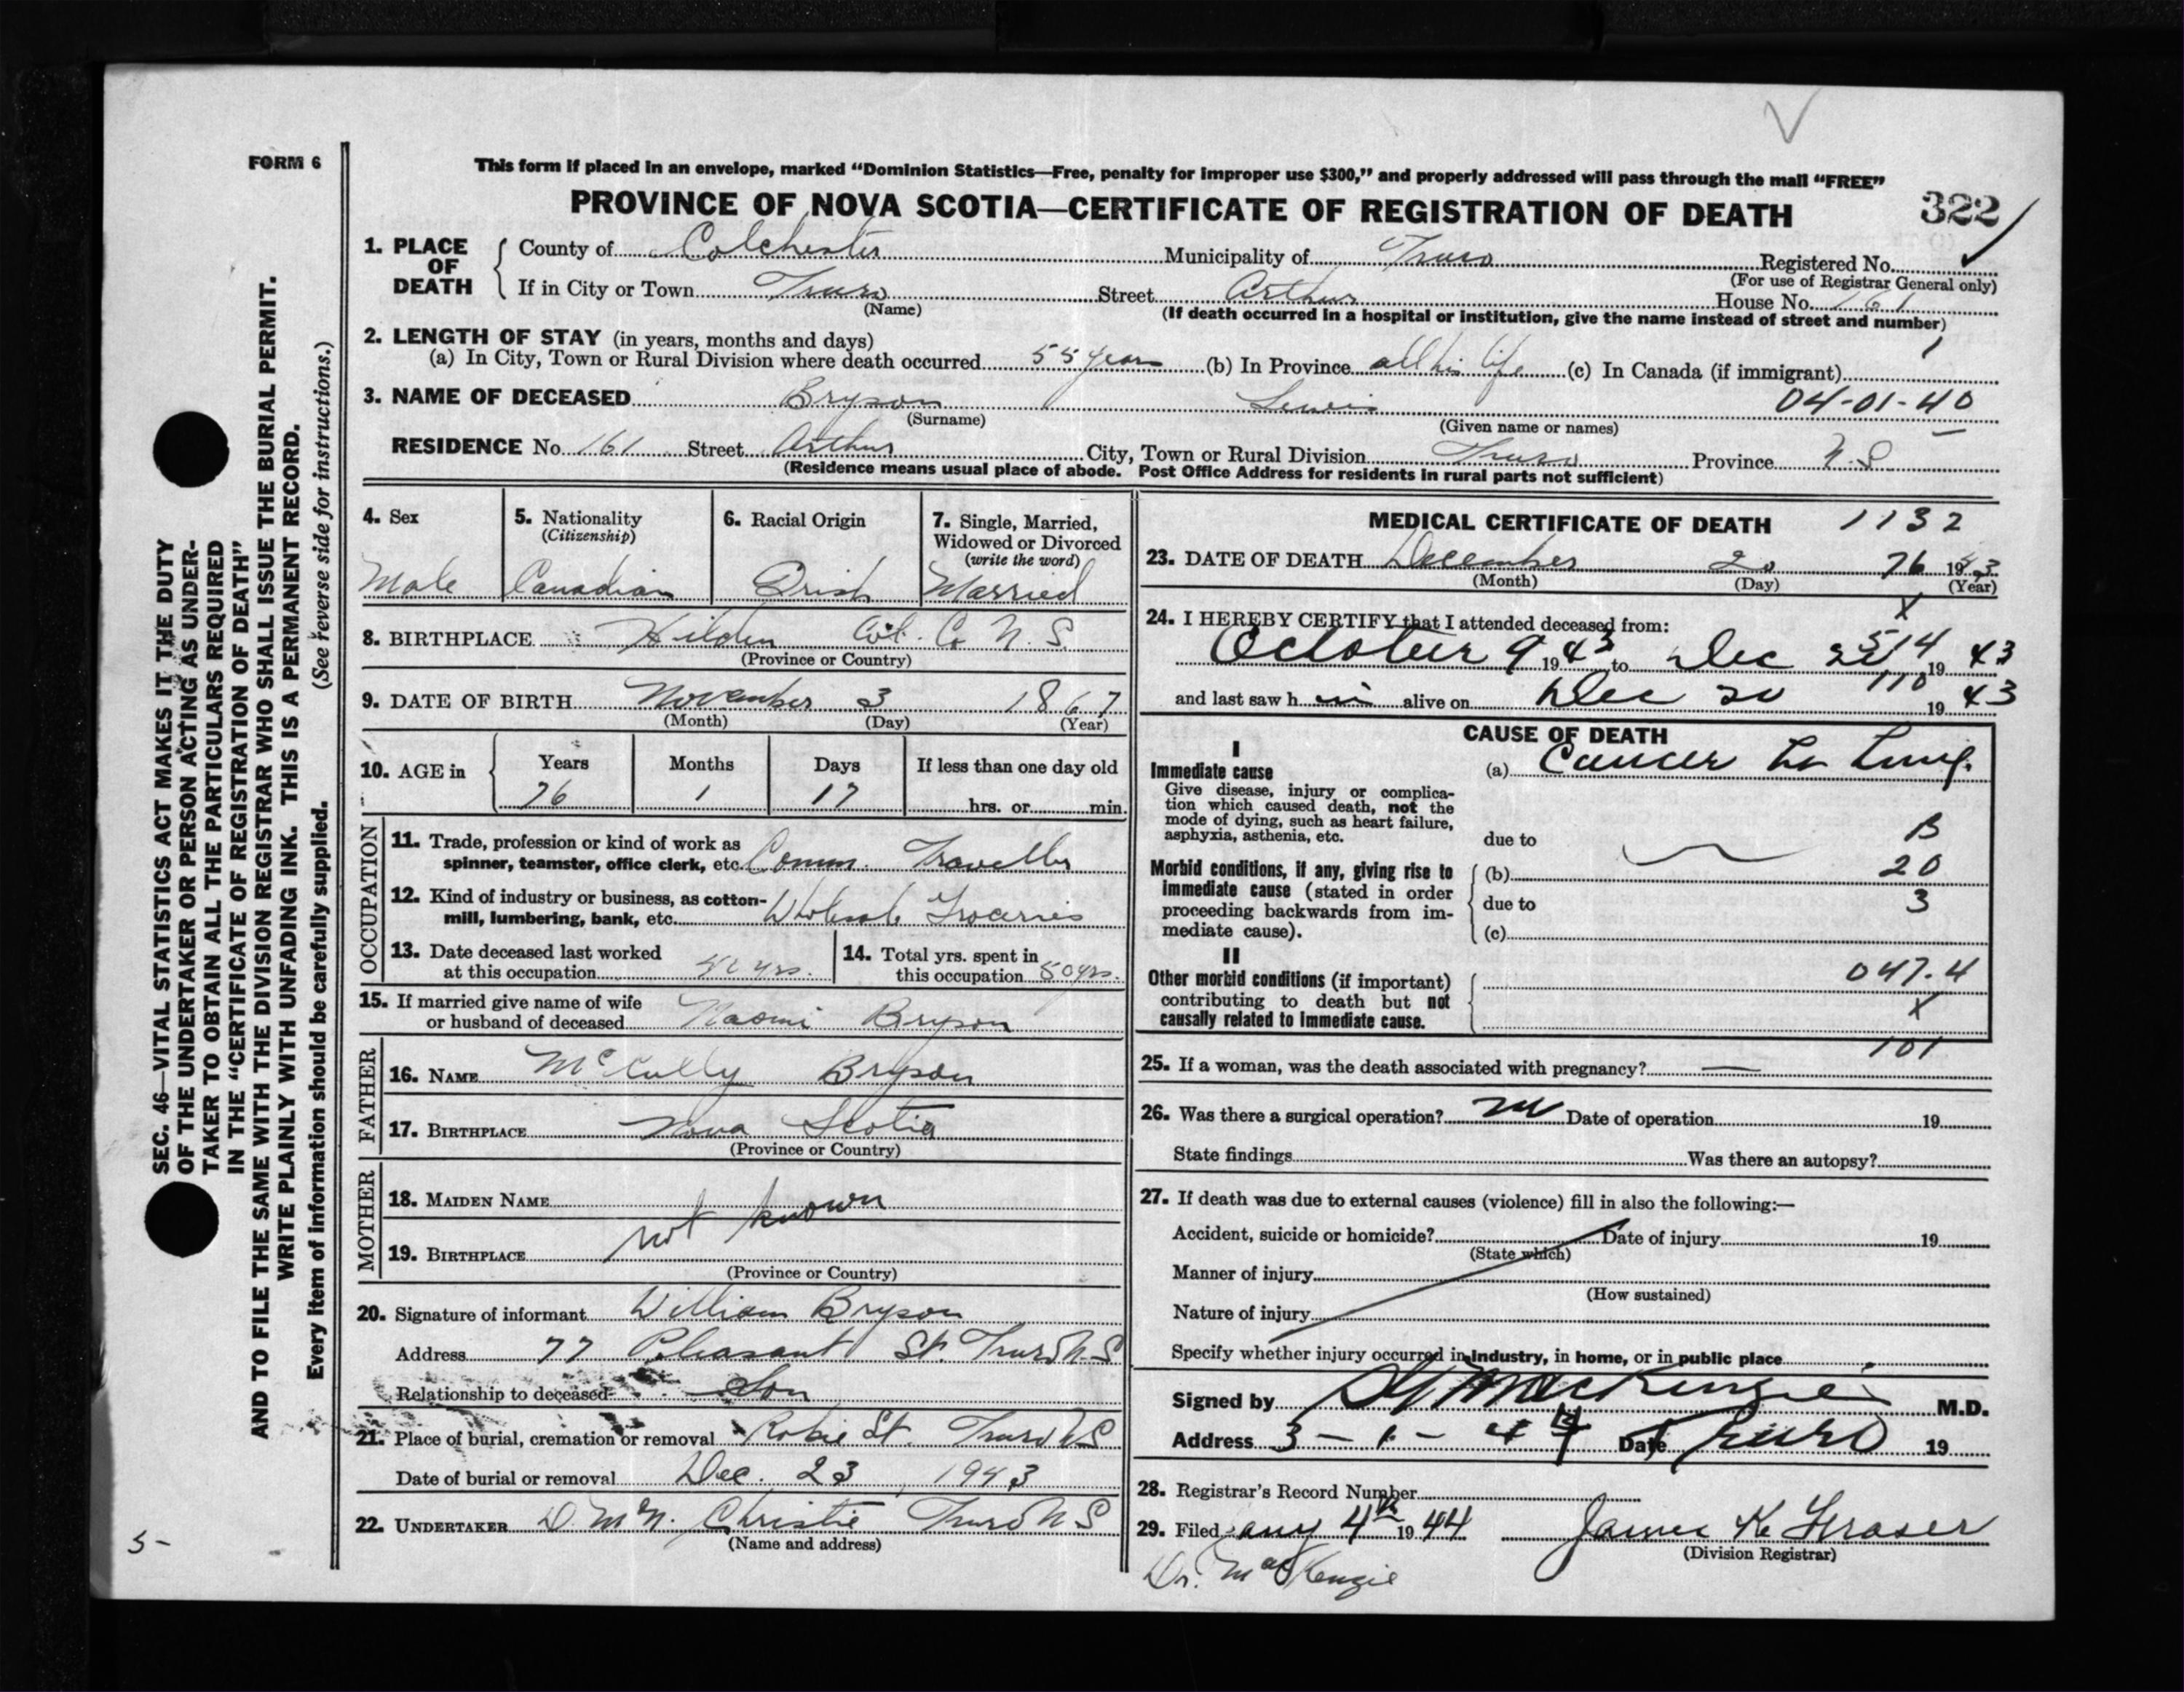 FORM 6
This form if placed in an envelope, marked “Dominion Statistics—Free, penalty for improper use $300,” and properly addressed will pass through the mail “FREE”
PROVINCE OF NOVA SCOTIA—CERTIFICATE OF REGISTRATION OF DEATH
322
1. PLACE OF DEATH
County of Colchester Municipality of Truro Registered No.
(For use of Registrar General only)
If in City or Town Truro Street Arthur House No. 161
(Name) (If death occurred in a hospital or institution, give the name instead of street and number)
2. LENGTH OF STAY (in years, months and days)
(a) In City, Town or Rural Division where death occurred 55 years (b) In Province all his life (c) In Canada (if immigrant)
3. NAME OF DECEASED Bryson Lewis 04-01-40
(Surname) (Given name or names)
RESIDENCE No. 161 Street Arthur City, Town or Rural Division Truro Province N.S.
(Residence means usual place of abode. Post Office Address for residents in rural parts not sufficient)
4. Sex
Male
5. Nationality
(Citizenship)
Canadian
6. Racial Origin
Irish
7. Single, Married,
Widowed or Divorced
(write the word)
Married
8. BIRTHPLACE Hilden Col. Co N.S.
(Province or Country)
9. DATE OF BIRTH November 3 1867
(Month) (Day) (Year)
10. AGE in
Years Months Days If less than one day old
76 1 17 hrs. or min.
OCCUPATION
11. Trade, profession or kind of work as
spinner, teamster, office clerk, etc. Comm. Traveller
12. Kind of industry or business, as cotton-
mill, lumbering, bank, etc. Wholesale Groceries
13. Date deceased last worked
at this occupation yrs.
14. Total yrs. spent in
this occupation 50 yrs.
15. If married give name of wife
or husband of deceased Naomi Bryson
FATHER
16. NAME McCully Bryson
17. BIRTHPLACE Nova Scotia
(Province or Country)
MOTHER
18. MAIDEN NAME
not known
19. BIRTHPLACE
(Province or Country)
20. Signature of informant William Bryson
Address 77 Pleasant St. Truro N.S
Relationship to deceased Son
21. Place of burial, cremation or removal Robie St. Truro NS
Date of burial or removal Dec. 23, 1943
22. UNDERTAKER D. McN. Christie Truro N S
(Name and address)
MEDICAL CERTIFICATE OF DEATH 1132
23. DATE OF DEATH December 20 76 1943
(Month) (Day) (Year)
X
24. I HEREBY CERTIFY that I attended deceased from:
514
October 9 1943 to Dec 20 19 43
110
and last saw h im alive on Dec 20 19 43
CAUSE OF DEATH
I
Immediate cause
Give disease, injury or complica-
tion which caused death, not the
mode of dying, such as heart failure,
asphyxia, asthenia, etc.
(a) Cancer Lung.
B
due to
Morbid conditions, if any, giving rise to
immediate cause (stated in order
proceeding backwards from im-
mediate cause).
(b) 20
due to 3
(c)
II
Other morbid conditions (if important)
contributing to death but not
causally related to immediate cause.
047.4
X
101
25. If a woman, was the death associated with pregnancy? —
26. Was there a surgical operation? no Date of operation 19
State findings Was there an autopsy?
27. If death was due to external causes (violence) fill in also the following:—
Accident, suicide or homicide? Date of injury 19
(State which)
Manner of injury
(How sustained)
Nature of injury
Specify whether injury occurred in industry, in home, or in public place
Signed by MacKenzie M.D.
Address 3 - 1 - 44 Date Truro 19
28. Registrar's Record Number
29. Filed Jany 4th 1944 James K Fraser
(Division Registrar)
Dr. MacKenzie
SEC. 46—VITAL STATISTICS ACT MAKES IT THE DUTY
OF THE UNDERTAKER OR PERSON ACTING AS UNDER-
TAKER TO OBTAIN ALL THE PARTICULARS REQUIRED
IN THE “CERTIFICATE OF REGISTRATION OF DEATH”
AND TO FILE THE SAME WITH THE DIVISION REGISTRAR WHO SHALL ISSUE THE BURIAL PERMIT.
WRITE PLAINLY WITH UNFADING INK. THIS IS A PERMANENT RECORD.
Every item of information should be carefully supplied. (See reverse side for instructions.)
5-